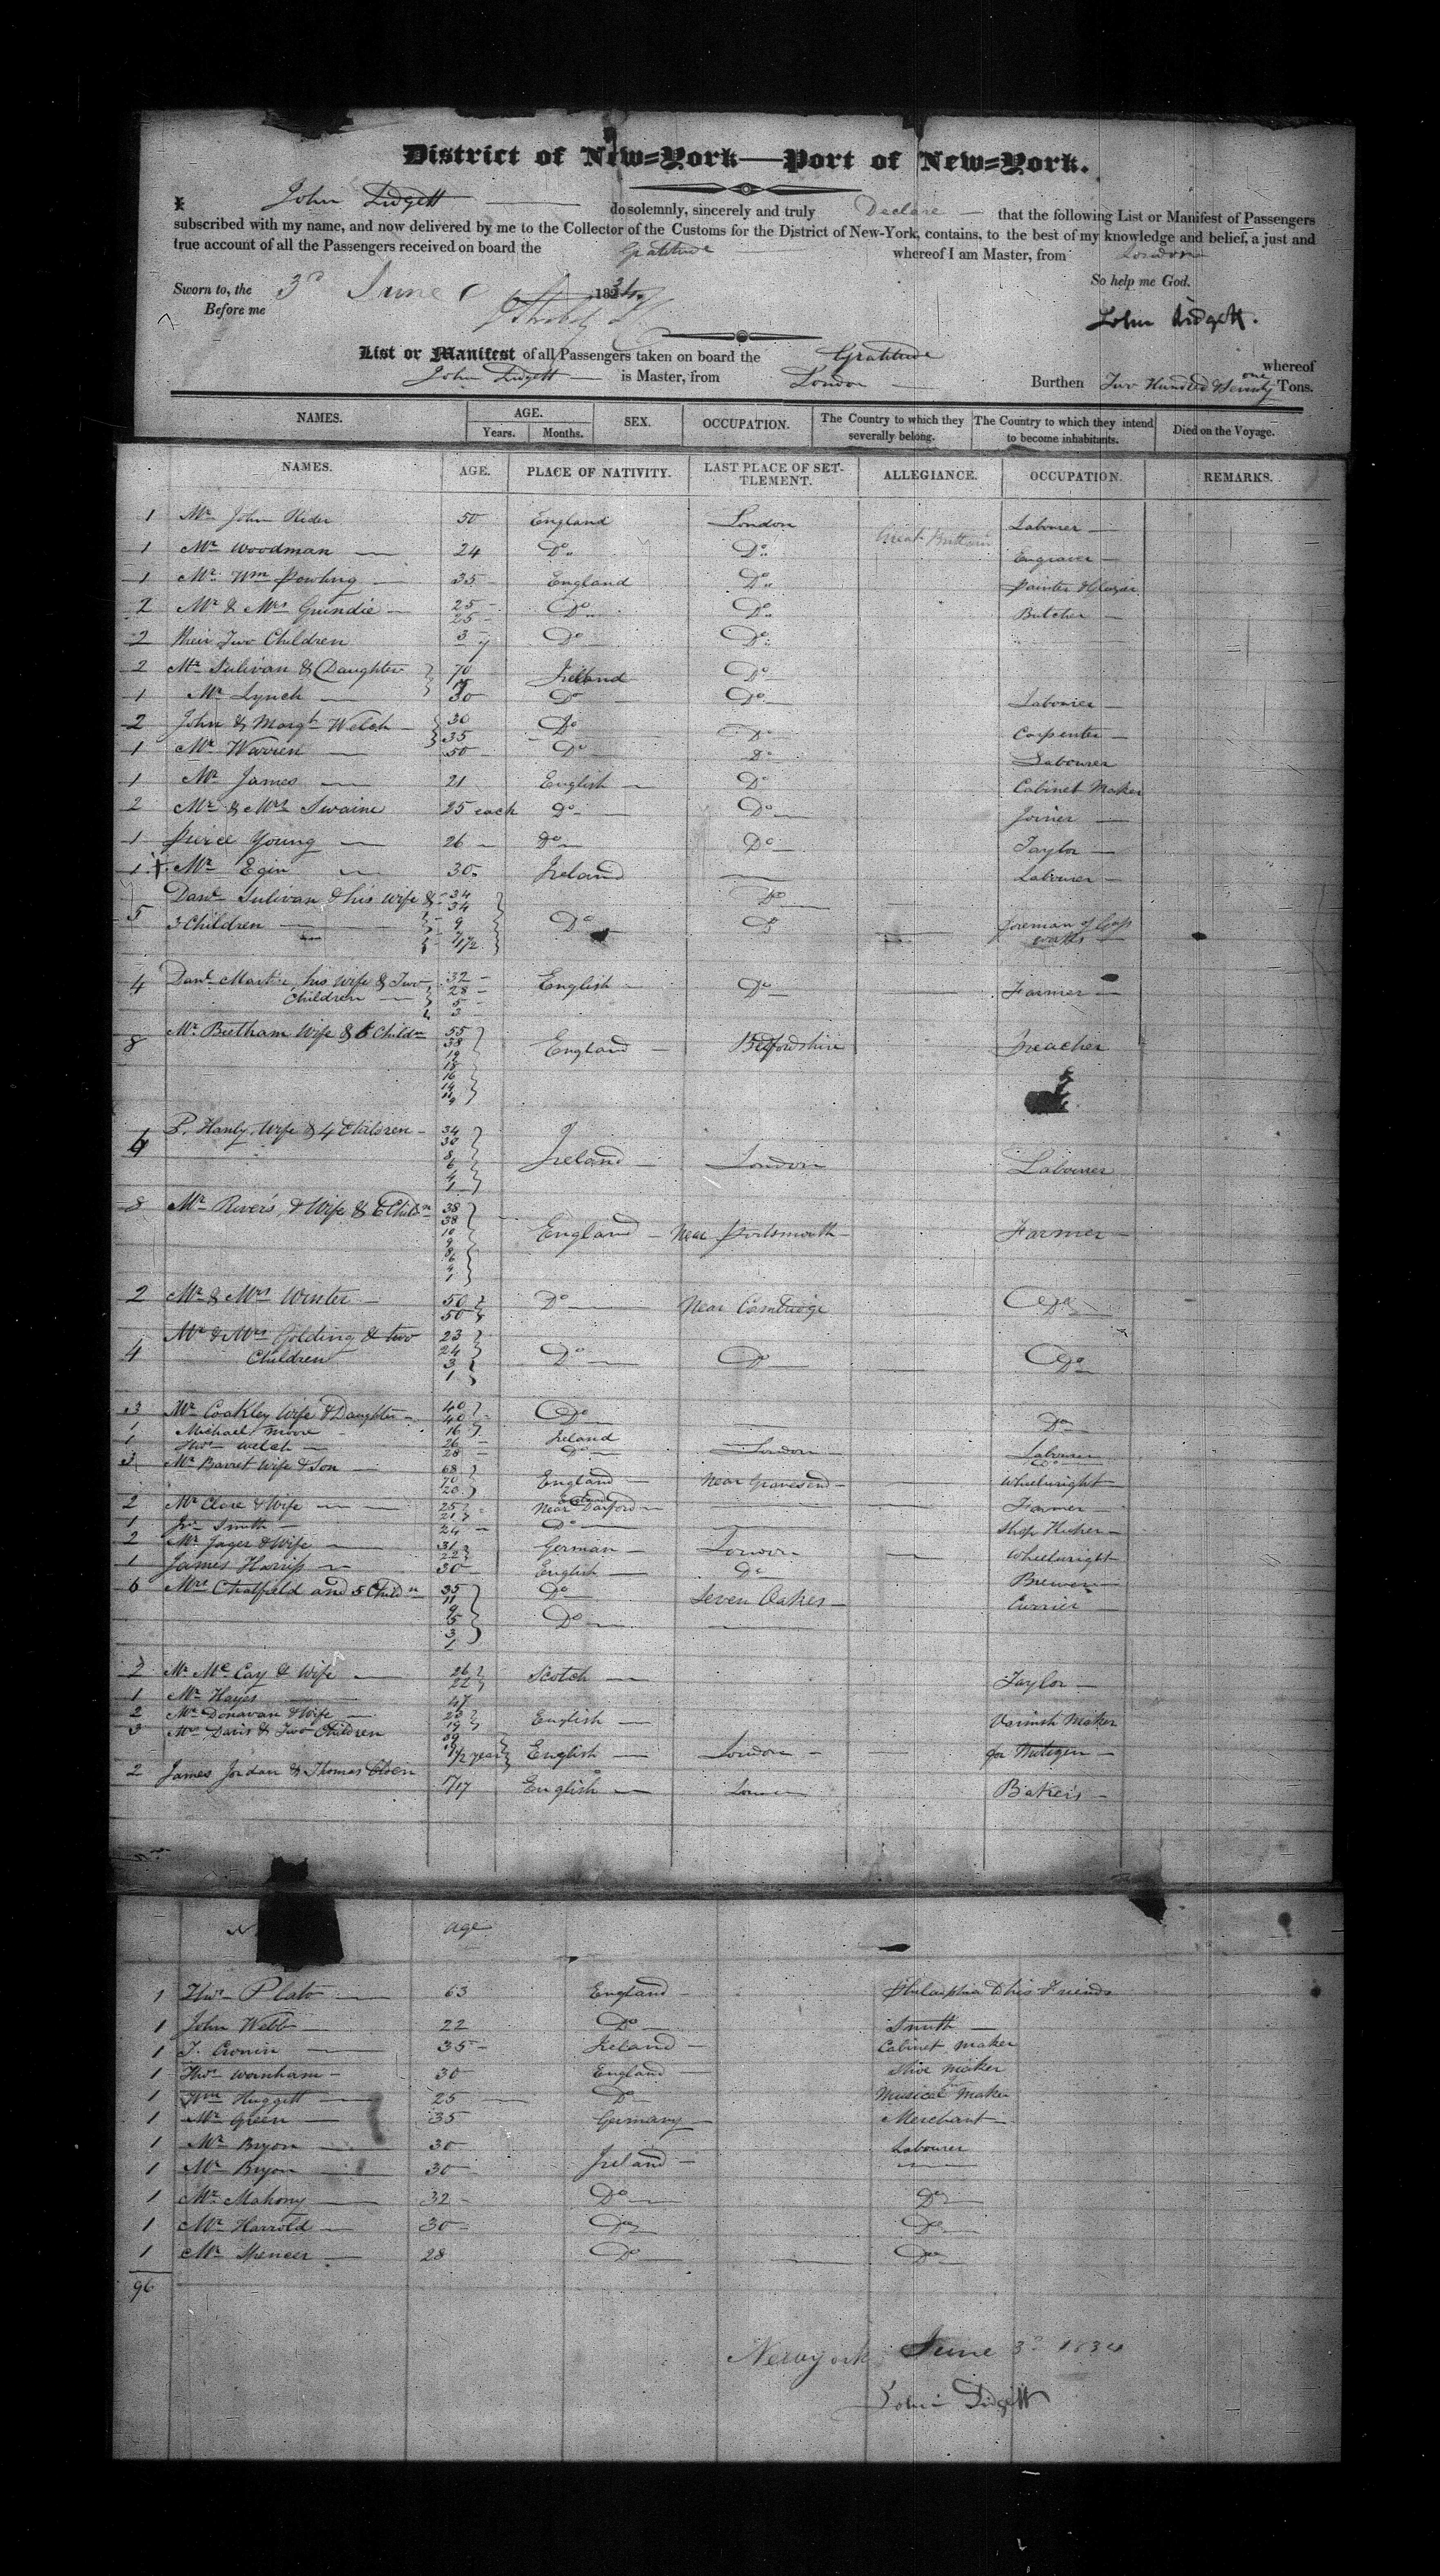 District of New=York—Port of New=York.
I John Lidgett do solemnly, sincerely and truly Declare that the following List or Manifest of Passengers
subscribed with my name, and now delivered by me to the Collector of the Customs for the District of New-York, contains, to the best of my knowledge and belief, a just and
true account of all the Passengers received on board the Gratitude whereof I am Master, from London
So help me God.
Sworn to, the 3d June 1834
Before me
John Lidgett.
List or Manifest of all Passengers taken on board the Gratitude whereof
John Lidgett is Master, from London Burthen Two Hundred & Seventy one Tons.
NAMES. AGE. Years. Months. SEX. OCCUPATION. The Country to which they severally belong. The Country to which they intend to become inhabitants. Died on the Voyage.
NAMES. AGE. PLACE OF NATIVITY. LAST PLACE OF SETTLEMENT. ALLEGIANCE. OCCUPATION. REMARKS.
1 Mr John Rider 50 England London Great Britain Labourer
1 Mr Woodman 24 Do Do Engraver
1 Mr Wm Powling 35 England Do Painter & Glazier
2 Mr & Mrs Grindie 25 25 Do Do Butcher
2 their Two Children 3 Do Do
2 Mr Sulivan & Daughter 70 Ireland Do
1 Mr Lynch 30 Do Do Labourer
2 John & Margt Welch 30 35 Do Do Carpenter
1 Mr Warren 50 Do Do Labourer
1 Mr James 21 English Do Cabinet Maker
2 Mr & Mrs Swaine 25 each Do Do Joiner
1 Pierce Young 26 Do Do Taylor
1 Mr Egin 30 Ireland Labourer
Danl Sulivan & his wife & 34 34 Do
5 3 Children 9 7 1/2 Do Do foreman of Gass
works
4 Danl Martin, his wife & Two 32 28 English Do Farmer
Children 5 3
8 Mr Beetham Wife & 6 Childn 55 38 19 18 16 14 11 9 England Bedfordshire Preacher
6 P. Hanly, Wife & 4 Children 34 30 8 6 4 1 Ireland London Labourer
8 Mr Rivers, & Wife & 6 Childn 38 38 10 9 8 6 4 1 England Near Portsmouth Farmer
2 Mr & Mrs Winter 50 50 Do Near Cambridge Do
Mr & Mrs Golding & two 23 24
4 Children 3 1 Do Do Do
3 Mr Coakley Wife & Daughter 40 40 16 Do Do
1 Michael Moore 26 Ireland London Labourer
1 Thos Welch 28 Do Do
3 Mr Barret Wife & Son 68 70 20 England Near Gravesend Wheelwright
2 Mr Clare & Wife 25 21 Near Darford Farmer
1 Jno Smith 24 Do Shop Keeper
2 Mr Jager & Wife 31 22 German London Wheelwright
1 James Harriss 30 English Do Brewer
6 Mrs Chatfield and 5 Childn 35 11 9 5 3 1 Do Do Seven Oakes Currier
2 Mr McCay & Wife 26 22 Scotch Taylor
1 Mr Hayes 47
2 Mr Donavan & Wife 23 19 English Varnish Maker
3 Mrs Davis & Two Children 1/2 year English London
2 James Jordan & Thomas 17/17 English London Bakers
age
1 Thos Plato 63 England Philadelphia to his Friends
1 John Webb 22 Do Smith
1 T. Cronin 35 Ireland Cabinet maker
1 Thos Warnham 30 England Shoe maker
1 Wm Huggett 25 Do Musical Maker
1 Mr Green 35 Germany Merchant
1 Mr Bryon 30 Labourer
1 Mr Bryon 30 Ireland
1 Mr Mahony 32 Do Do
1 Mr Harrold 30 Do Do
1 Mr Spencer 28 Do Do
96
Newyork June 3d 1834
John Lidgett